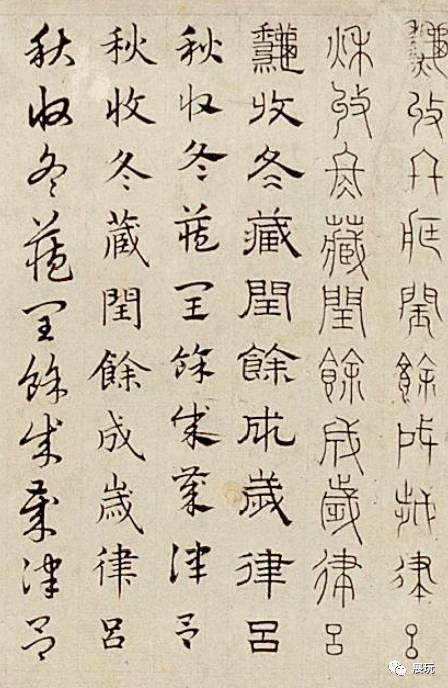 龝收冬藏閏餘成歲律呂
秋收冬藏閏餘成歲律呂
龝收冬藏閏餘成歲律呂
秋收冬藏閏餘成歲律呂
秋收冬藏閏餘成歲律呂
秋收冬藏閏餘成歲律呂
展玩